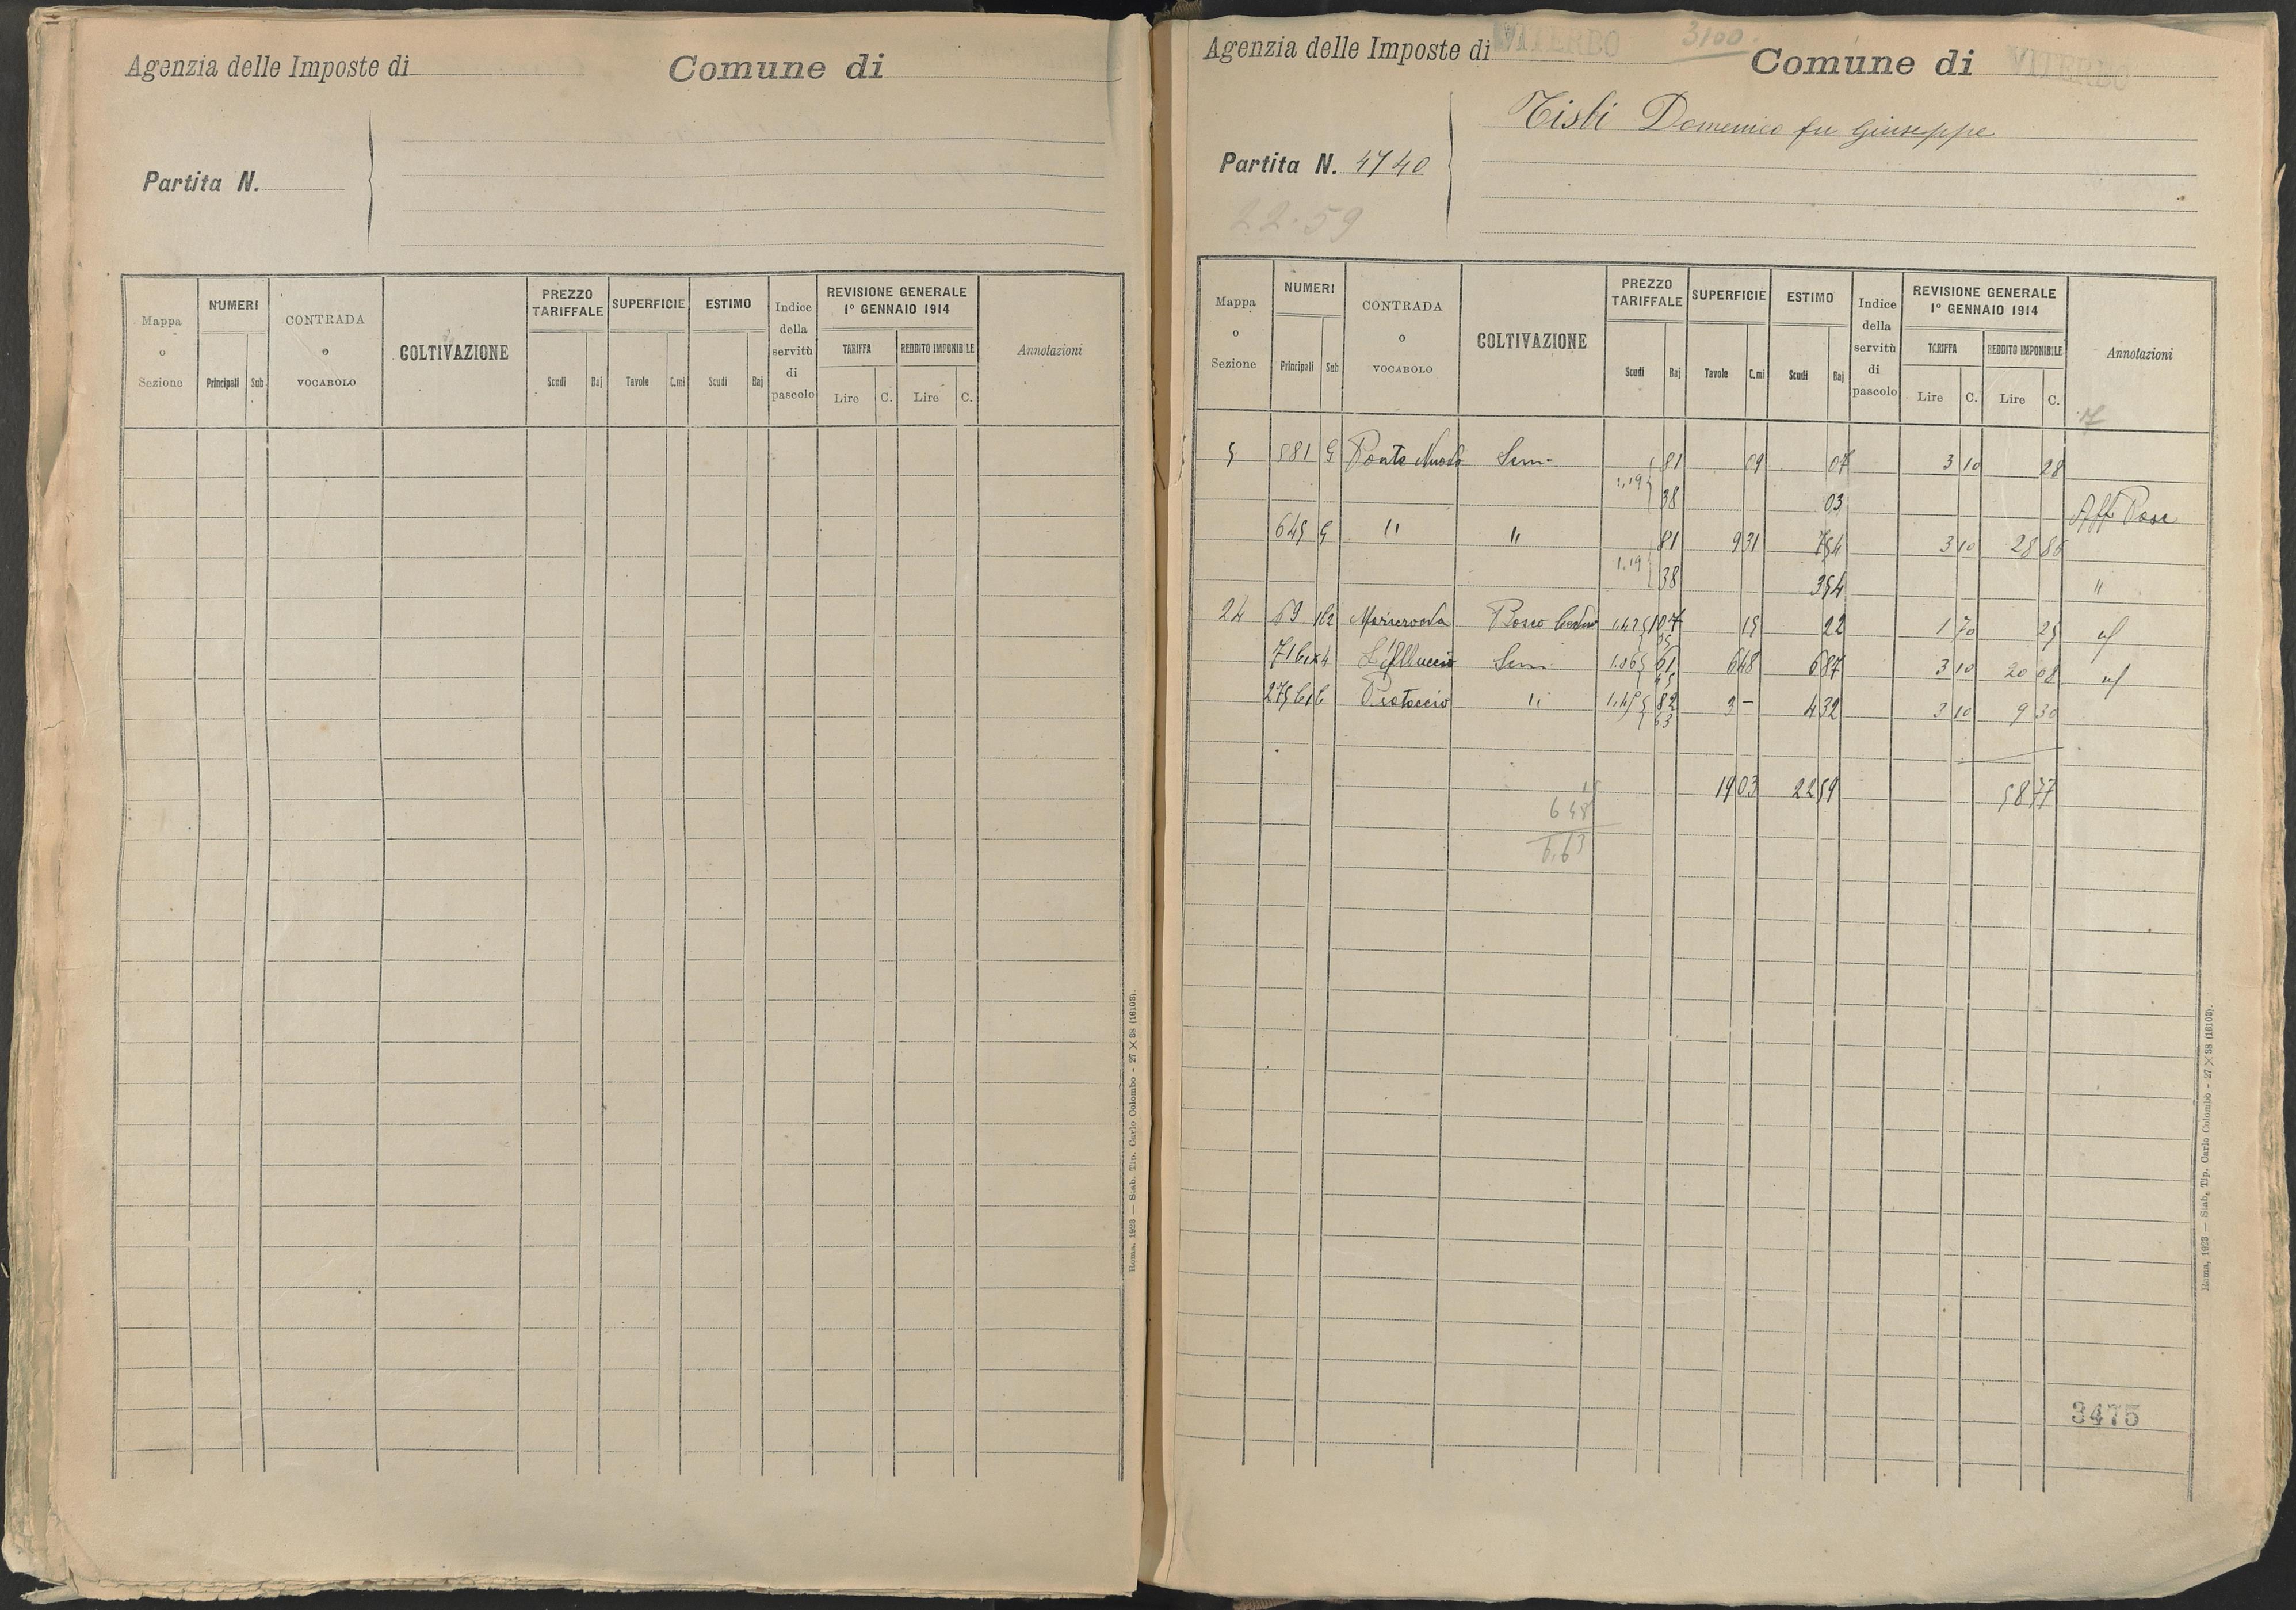 Agenzia delle Imposte di
Comune di
Partita N.
Mappa o Sezione
NUMERI
Principali Sub
CONTRADA o VOCABOLO
COLTIVAZIONE
PREZZO TARIFFALE
Scudi Baj
SUPERFICIE
Tavole C.mi
ESTIMO
Scudi Baj
Indice della servitù di pascolo
REVISIONE GENERALE 1° GENNAIO 1914
TARIFFA
Lire C.
REDDITO IMPONIBILE
Lire C.
Annotazioni
Roma, 1923 — Stab. Tip. Carlo Colombo - 27 X 38 (16103).
Agenzia delle Imposte di VITERBO 3100
Comune di VITERBO
Tisbi Domenico fu Giuseppe
Partita N. 4740
22.59
Mappa o Sezione
NUMERI
Principali Sub
CONTRADA o VOCABOLO
COLTIVAZIONE
PREZZO TARIFFALE
Scudi Baj
SUPERFICIE
Tavole C.mi
ESTIMO
Scudi Baj
Indice della servitù di pascolo
REVISIONE GENERALE 1° GENNAIO 1914
TARIFFA
Lire C.
REDDITO IMPONIBILE
Lire C.
Annotazioni
5 581 5 Ponte Nuovo Sem. 81 09 07 3 10 28
1.19 38 03 Aff. Pasc
645 5 " " 81 9 31 7 54 3 10 28 86
1.19 38 3 54 "
24 69 Bosco 1 07 15 22 1 70 25
Sem 61 6 48 6 87 3 10 20 08
" 82 3 - 4 32 3 10 9 30
63
19 03 22 59 58 77
15
6 48
6.63
3475
Roma, 1923 — Stab. Tip. Carlo Colombo - 27 X 38 (16103).